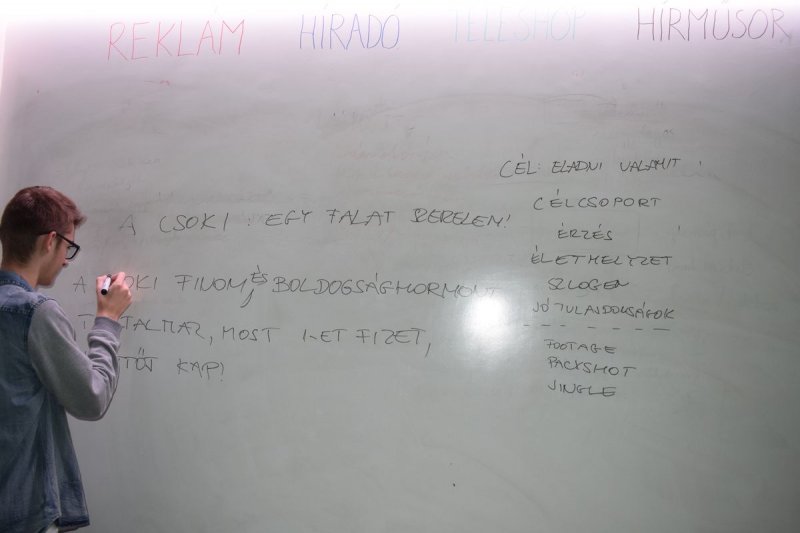 REKLÁM HÍRADÓ TELESHOP HÍRMŰSOR
A CSOKI: EGY FALAT SZERELEM!
A OKI FINOM, ÉS BOLDOGSÁGHORMONT
TALMAZ, MOST 1-ET FIZET,
KAP!
CÉL: ELADNI VALAMIT
CÉLCSOPORT
ÉRZÉS
ÉLETHELYZET
SZLOGEN
JÓ TULAJDONSÁGOK
FOOTAGE
PACKSHOT
JINGLE